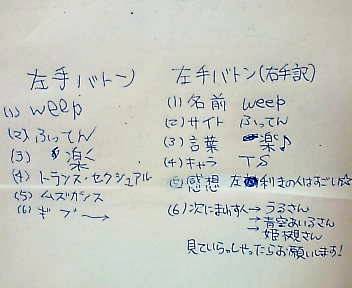 左手バトン
(1) weep
(2) ふってん
(3) 楽く
(4) トランス・セクシュアル
(5) ムズガシス
(6) ギブ〜→
左手バトン(右手訳)
(1) 名前 weep
(2) サイト ふってん
(3) 言葉 楽♪
(4) キャラ TS
(5) 感想 左利きの人はすごい☆
(6) 次にまわす人→うるさん
→青空あいるさん
→姫硯さん
見ていらっしゃったらお願いします!